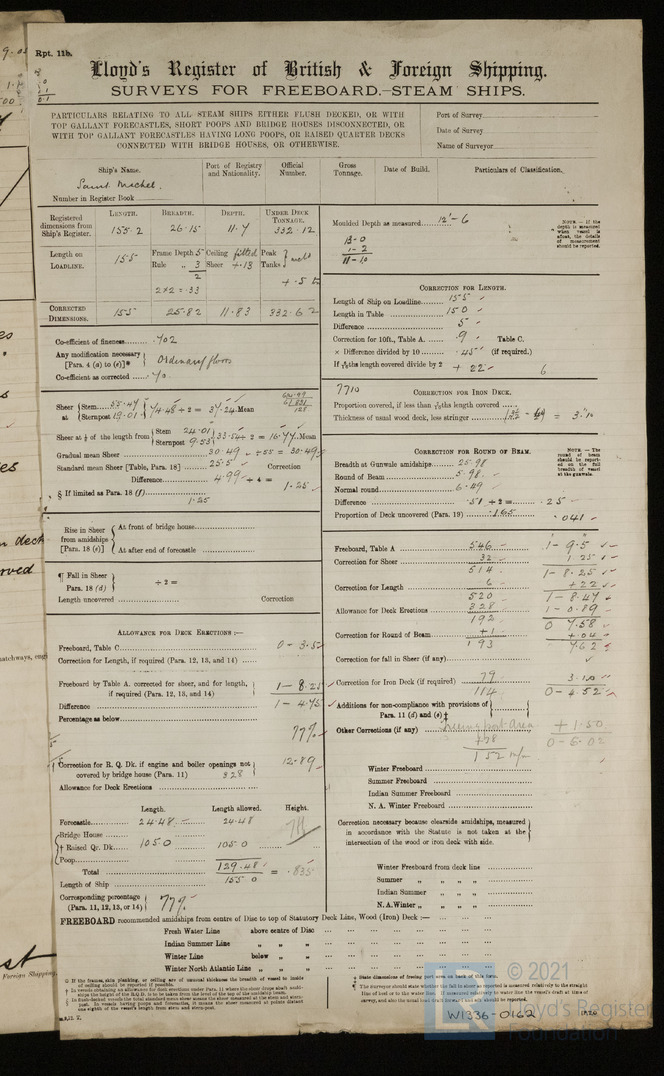 Rpt. 11b.
Lloyd's Register of British & Foreign Shipping.
SURVEYS FOR FREEBOARD.—STEAM SHIPS.
PARTICULARS RELATING TO ALL STEAM SHIPS EITHER FLUSH DECKED, OR WITH
TOP GALLANT FORECASTLES, SHORT POOPS AND BRIDGE HOUSES DISCONNECTED, OR
WITH TOP GALLANT FORECASTLES HAVING LONG POOPS, OR RAISED QUARTER DECKS
CONNECTED WITH BRIDGE HOUSES, OR OTHERWISE.
Port of Survey
Date of Survey
Name of Surveyor
Ship's Name. Port of Registry and Nationality. Official Number. Gross Tonnage. Date of Build. Particulars of Classification.
Saint Michel.
Number in Register Book
Registered dimensions from Ship's Register. LENGTH. BREADTH. DEPTH. UNDER DECK TONNAGE.
155.2 26.15 11.7 332.12
Length on LOADLINE. 155 Frame Depth 5 Ceiling fitted Peak Tanks
Rule " 3 Sheer + .13
2
2×2 = .33
CORRECTED DIMENSIONS. 155 25.82 11.83 332.62
Co-efficient of fineness .702
Any modification necessary [Para. 4 (a) to (e)]* Ordinary floors
Co-efficient as corrected .70
Sheer at Stem 55.47 Sternpost 19.01 74.48 ÷ 2 = 37.24 Mean
Sheer at ⅛ of the length from Stem 24.01 Sternpost 9.53 33.54 ÷ 2 = 16.77 Mean
Gradual mean Sheer 30.49 ÷ .55 = 30.49
Standard mean Sheer [Table, Para. 18] 25.5 Correction
Difference 4.99 ÷ 4 = 1.25
§ If limited as Para. 18 (f) 1.25
Rise in Sheer from amidships [Para. 18 (e)] At front of bridge house
At after end of forecastle
¶ Fall in Sheer Para. 18 (d) ÷ 2 =
Length uncovered Correction
ALLOWANCE FOR DECK ERECTIONS :—
Freeboard, Table C 0 - 3.5
Correction for Length, if required (Para. 12, 13, and 14)
Freeboard by Table A. corrected for sheer, and for length, if required (Para. 12, 13, and 14) 1 - 8.25
Difference 1 - 4.75
Percentage as below 77%
Correction for R. Q. Dk. if engine and boiler openings not covered by bridge house (Para. 11) 328 12.89
Allowance for Deck Erections
Length. Length allowed. Height.
Forecastle 24.48 24.48
Bridge House
† Raised Qr. Dk. 105.0 105.0
Poop
Total 129.48 = .835
Length of Ship 155.0
Corresponding percentage (Para. 11, 12, 13, or 14) 77%
Moulded Depth as measured 12'-6
13-0
1-2
11-10
NOTE.—If the depth is measured when vessel is afloat, the details of measurement should be reported.
CORRECTION FOR LENGTH.
Length of Ship on Loadline 155
Length in Table 150
Difference 5
Correction for 10ft., Table A. .9 Table C.
× Difference divided by 10 .45 (if required.)
If ⁶⁄₁₀ths length covered divide by 2 + .22 6
7710
CORRECTION FOR IRON DECK.
Proportion covered, if less than ⁷⁄₁₀ths length covered
Thickness of usual wood deck, less stringer = 3.10
CORRECTION FOR ROUND OF BEAM.
Breadth at Gunwale amidships 25.98
Round of Beam 5.98
Normal round 6.49
Difference .51 ÷ 2 = .25
Proportion of Deck uncovered (Para. 19) .165 .041
NOTE.—The round of beam should be reported on the full breadth of vessel at the gunwale.
Freeboard, Table A 546 1 - 9.5
Correction for Sheer 32 1.25
514 1 - 8.25
Correction for Length 6 + .22
520 1 - 8.47
Allowance for Deck Erections 328 1 - 0.89
192 0 7.58
Correction for Round of Beam +1 + .04
193 7.62
Correction for fall in Sheer (if any)
Correction for Iron Deck (if required) 79 3.10
114 0 - 4.52
Additions for non-compliance with provisions of Para. 11 (d) and (e) ‡
Other Corrections (if any) freeing port area + 1.50
+38 0 - 6.02
152 m/m
Winter Freeboard
Summer Freeboard
Indian Summer Freeboard
N. A. Winter Freeboard
Correction necessary because clearside amidships, measured
in accordance with the Statute is not taken at the
intersection of the wood or iron deck with side.
Winter Freeboard from deck line
Summer " " " "
Indian Summer " " " "
N. A. Winter " " " "
FREEBOARD recommended amidships from centre of Disc to top of Statutory Deck Line, Wood (Iron) Deck :—
Fresh Water Line above centre of Disc
Indian Summer Line " " "
Winter Line below " "
Winter North Atlantic Line " " "
© 2021
Lloyd's Register
Foundation
W1336-0162